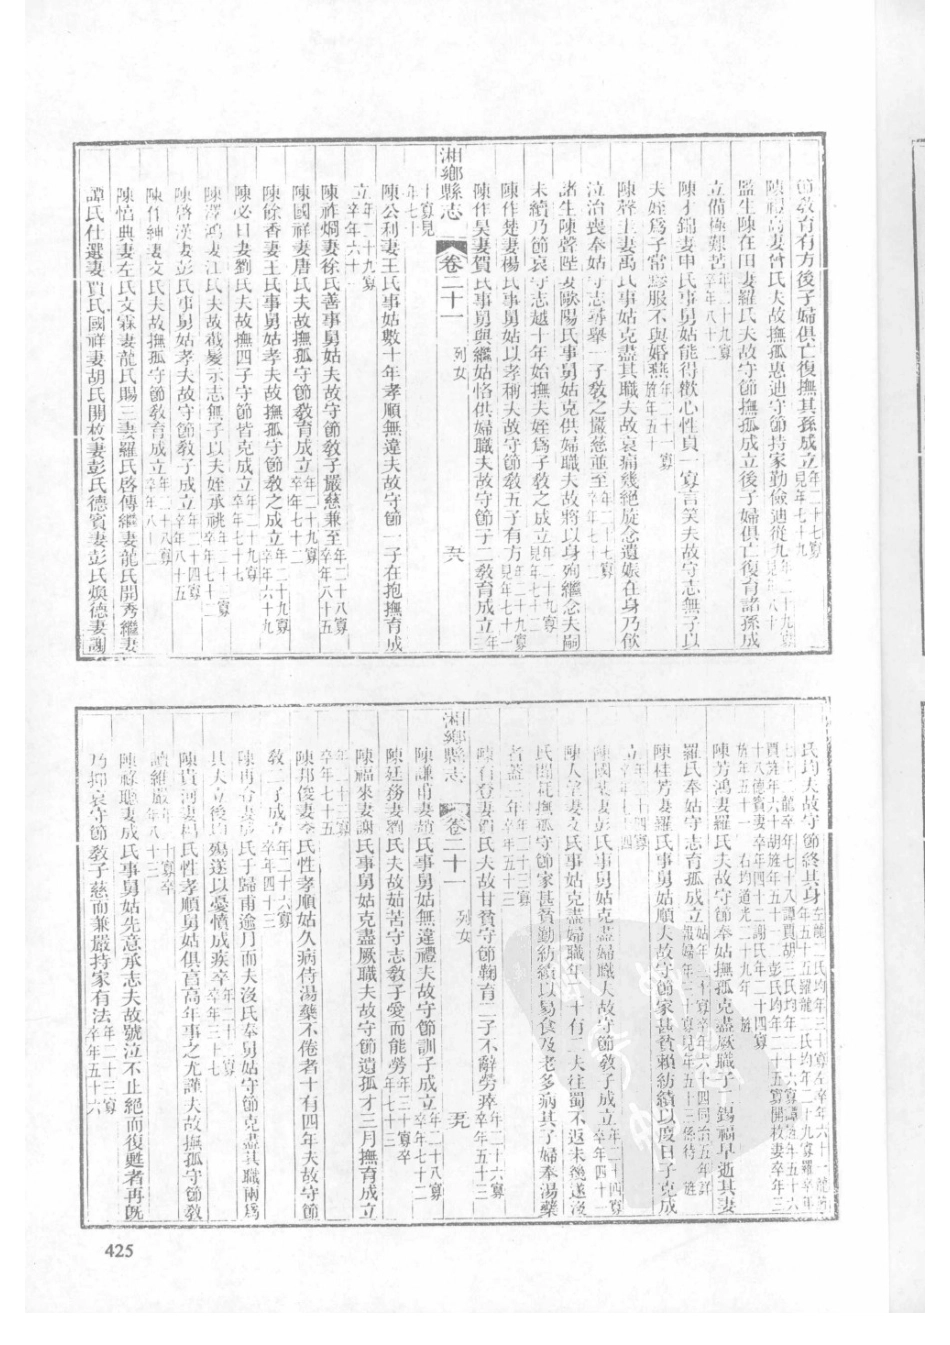 節教育有方後子婦俱亡復撫其孫成立年二十七寡見年七十九
陳視高妻曾氏夫故撫孤惠迪守節持家勤儉迪從九年二十九寡見年八十
監生陳在田妻羅氏夫故守節撫孤成立後子婦俱亡復育諸孫成
立備極艱苦年二十九寡卒年八十二
陳才錦妻申氏事舅姑能得歡心性貞一寡言笑夫故守志無子以
夫姪爲子常服不與婚燕年二十一寡旌年五十
陳聲玉妻禹氏事姑克盡其職夫故哀痛幾絕旋念遺娠在身乃飲
泣治喪奉姑守志尋舉一子教之嚴慈並至年二十七寡卒年七十
諸生陳聲陛妻歐陽氏事舅姑克供婦職夫故將以身殉繼念夫嗣
未續乃節哀守志越十年始撫夫姪爲子教之成立年二十九寡見年七十二
陳作楚妻楊氏事舅姑以孝稱夫故守節教五子有方年二十九寡見年七十一
陳作吳妻賀氏事舅與繼姑恪供婦職夫故守節子二教育成立年三
湘鄉縣志 卷二十一 列女
十寡見年七十
陳公利妻王氏事姑數十年孝順無違夫故守節一子在抱撫育成
立年二十九寡卒年六十
陳祚燗妻徐氏善事舅姑夫故守節教子嚴慈兼至年二十八寡卒年八十五
陳國祥妻唐氏夫故撫孤守節教育成立年二十九寡卒年七十二
陳餘香妻王氏事舅姑孝夫故撫孤守節教之成立年二十九寡卒年六十九
陳必日妻劉氏夫故撫四子守節皆克成立年二十九寡卒年七十七
陳澤鴻妻江氏夫故截髮示志無子以夫姪承祧年二十三寡卒年七十二
陳啓漢妻彭氏事舅姑孝夫故守節教子成立年二十四寡卒年八十五
陳作紳妻文氏夫故撫孤守節教育成立年二十八寡卒年八十二
陳恬典妻左氏文霖妻龍氏賜三妻羅氏啓傳繼妻龍氏開秀繼妻
譚氏仕選妻賈氏國祥妻胡氏開枚妻彭氏德賓妻彭氏煥德妻謝
氏均夫故守節終其身左龍二氏均年三十寡左卒年六十一龍
年五十五羅龍二氏均年二十九寡羅卒年
七十龍卒年七十八譚賈胡三氏均年二十六寡譚年五十六
賈旌年六十胡旌年五十二彭氏均年二十五寡開枚妻卒年三
十八德賓妻卒年四十二謝氏年二十四寡
旌年五十一 右均道光十九年 旌
陳芳鴻妻羅氏夫故守節奉姑撫孤克盡厥職子二錫福早逝其妻
羅氏奉姑守志育孤成立姑年三十寡卒年六十四同治五年詳
報婦年三十寡見年五十三係待 旌
陳桂芳妻羅氏事舅姑順夫故守節家甚貧賴紡績以度日子克成
立年二十四寡卒年七十四
陳國 妻彭氏事舅姑克盡婦職夫故守節教子成立年二十四寡卒年四十一
陳人 妻文氏事姑克盡婦職年二十有二夫往蜀不返未幾遂沒
氏聞耗撫孤守節家甚貧勤紡績以易食及老多病其子婦奉湯藥
者蓋三年年二十三寡卒年五十三
陳有 妻賀氏夫故甘貧守節鞠育二子不辭勞瘁年二十六寡卒年五十三
湘鄉縣志 卷二十一 列女
陳謙甫妻趙氏事舅姑無違禮夫故守節訓子成立年二十八寡卒年七十二
陳廷務妻劉氏夫故茹苦守志教子愛而能勞年三十寡卒年七十三
陳福來妻謝氏事舅姑克盡厥職夫故守節遺孤才三月撫育成立
年二十二寡卒年七十五
陳邦俊妻李氏性孝順姑久病侍湯藥不倦者十有四年夫故守節
教二子成立年二十六寡卒年四十三
陳再 妻彭氏于歸甫逾月而夫沒氏奉舅姑守節克盡其職兩爲
其夫立後均殤遂以憂憤成疾卒年二十寡卒年三十七
陳貴河妻楊氏性孝順舅姑俱享高年事之尤謹夫故撫孤守節教
讀維嚴年 十寡卒年八十三
陳祿聰妻成氏事舅姑先意承志夫故號泣不止絕而復甦者再旣
乃抑哀守節教子慈而兼嚴持家有法年二十三寡卒年五十六
425